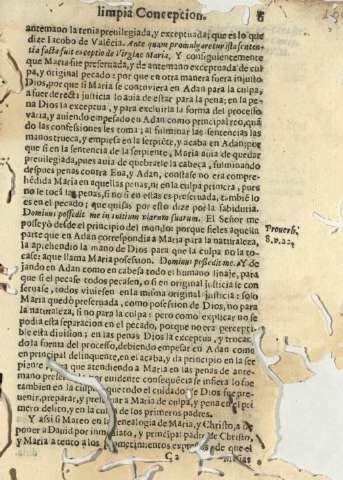 limpia Concepcion. 6
antemano la tenia preuilegiada, y exceptuada; que es lo que
dize Iacobo de Valẽcia. Ante quam promulgaretur ista senten-
tia facta fuit exceptio de Virgine Maria. Y consiguientemente
que Maria fue preseruada, y de antemano exceptuada de cul
pa, y original pecado: por que en otra manera fuera injusto
Dios, por que si Maria se contuviera en Adan para la culpa,
a fuer de recta justicia lo auia de estar para la pena; en la pe-
na Dios la exceptua, y para excluirla la forma del processo
varia, y auiendo empesado en Adan como principal reo, quã
do las confessiones les toma; al fulminar las sentencias las
manos trueca, y empiesa en la serpiẽte, y acaba en Adan; por
que si en la sentencia de la serpiente, Maria auia de quedar
preuilegiada, pues auia de quebrarle la cabeça, fulminando
despues penas contra Eua, y Adan, constase no era compre-
hẽdida Maria en aquellas penas, ni en la culpa primera, pues
no le tocã las penas, si no si en ellas es preseruada, tambiẽ lo
es en el pecado; que quisàs por esto dize por la sabiduria.
Dominus possedit me in initium viarum suarum. El Señor me
posseyò desde el principio del mundo: por que fiel es aquella
parte que en Adan correspondia a Maria para la naturaleza,
la aprehendio la mano de Dios para que la culpa no la to-
case; aque llama Maria possession. Dominus possedit me. Y de
jando en Adan como en cabesa todo el humano linaje, para
que si el pecase todos pecasen, o si en original justicia se con
seruase, todos viviesen en la misma original justicia: solo
Maria quedò preseruada, como possession de Dios, no para
la naturaleza, si no para la culpa: pero como explicar no se
podia esta separacion en el pecado, por que no era percepti-
ble esta division; en las penas Dios la exceptua, y trocac
do la forma del processo, debiendo empesar en Adam como
en principal delinquente, en el acaba, y da principio en la ser
piente, para que atendiendo a Maria en las penas de ante-
mano preseruada, por euidente consequẽcia se infiera lo fue
tambien en la culpa, que todo el cuidado de Dios fue pre-
uenir, preparar, y preseruar a Maria de culpa, y pena en el pri
mero delito, y en la culpa de los primeros padres.
Y assi S. Mateo en la Genealogia de Maria, y Christo, a de
poner a David por inmediato, y principal padre de Christo,
y Maria atento a los prometimientos expressos de que el
C 2 Mesias
Prouerb.
8. v. 22.